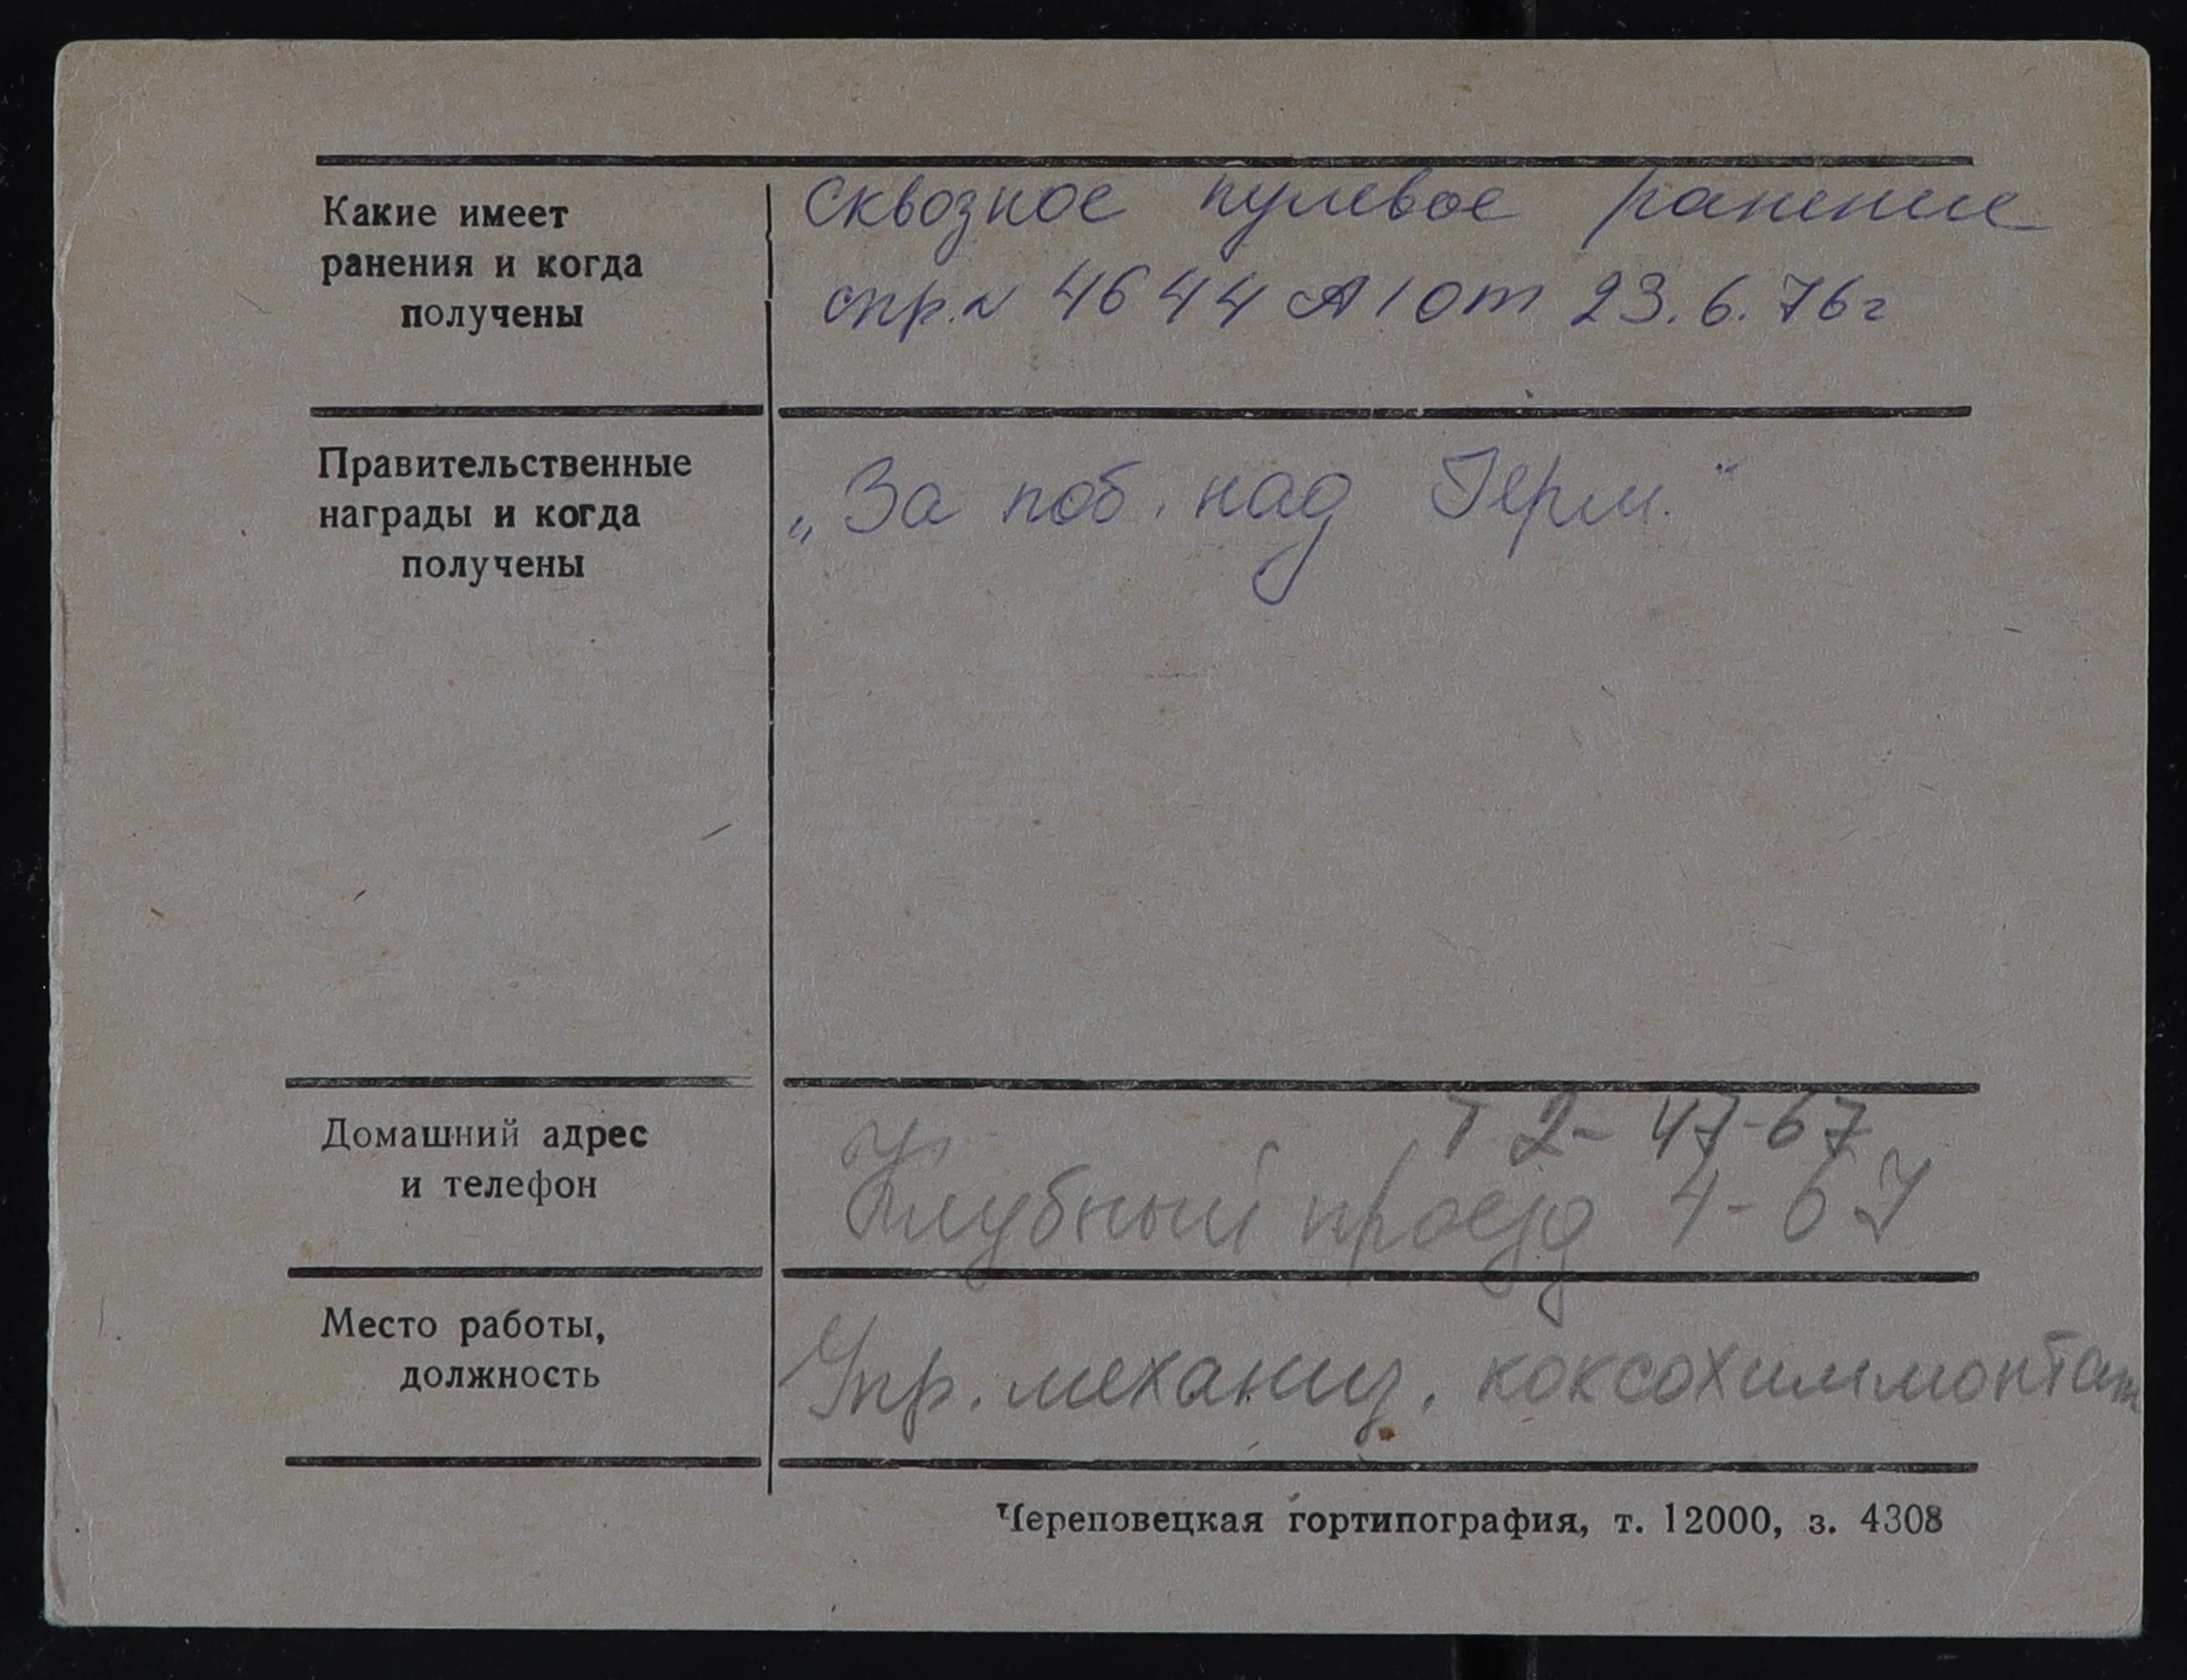 Какие имеет
ранения и когда
получены
сквозное пулевое ранение
спр. N 4644 А/ от 23.6.76г
Правительственные
награды и когда
получены
„За поб. над Герм."
Домашний адрес
и телефон
т 2-47-67
Клубный проезд 4-67
Место работы,
должность
Упр. механиз. коксохиммонтаж
Череповецкая гортипография, т. 12000, з. 4308